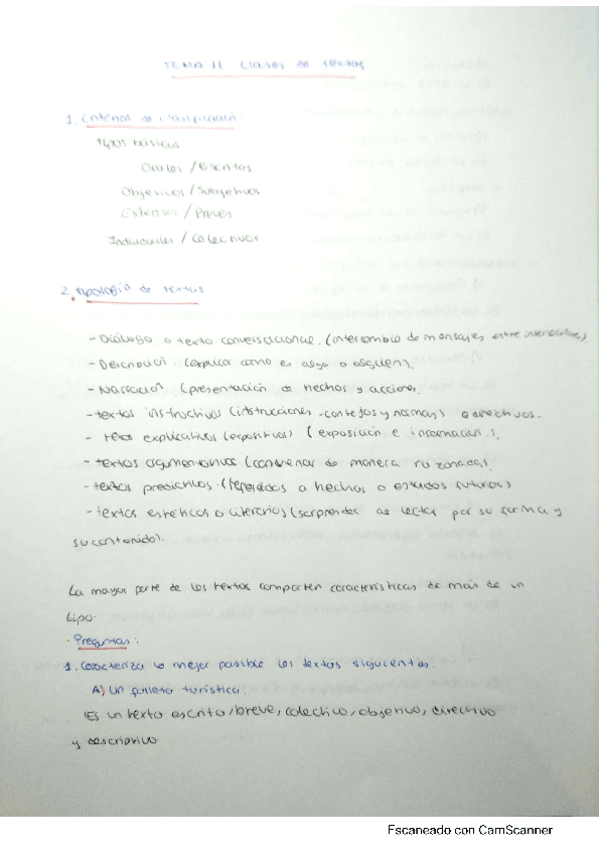 TEMA 11 Clases de textos
1. Criterios de clasificación:
Tipos básicos
Orales / Escritos
Objetivos / Subjetivos
Extensos / Breves
Individuales / Colectivos
2. Tipología de textos
- Diálogo o texto conversacional. (intercambio de mensajes entre interlocutores)
- Descripción. (explicar como es algo o alguien).
- Narración (presentación de hechos y acciones.
- textos instructivos (instrucciones, consejos y normas) o directivos.
- texos explicativos (expositivos) (exposición e información.).
- textos argumentativos (convencer de manera razonada).
- textos predictivos. (referidos a hechos o estados futuros)
- textos estéticos o literarios (sorprender al lector por su forma y
su contenido).
La mayor parte de los textos comparten características de más de un
tipo.
· Preguntas:
1. Caracteriza lo mejor posible los textos siguientes.
A) Un folleto turístico:
Es un texto escrito, breve, colectivo, objetivo, directivo
y descriptivo
Escaneado con CamScanner